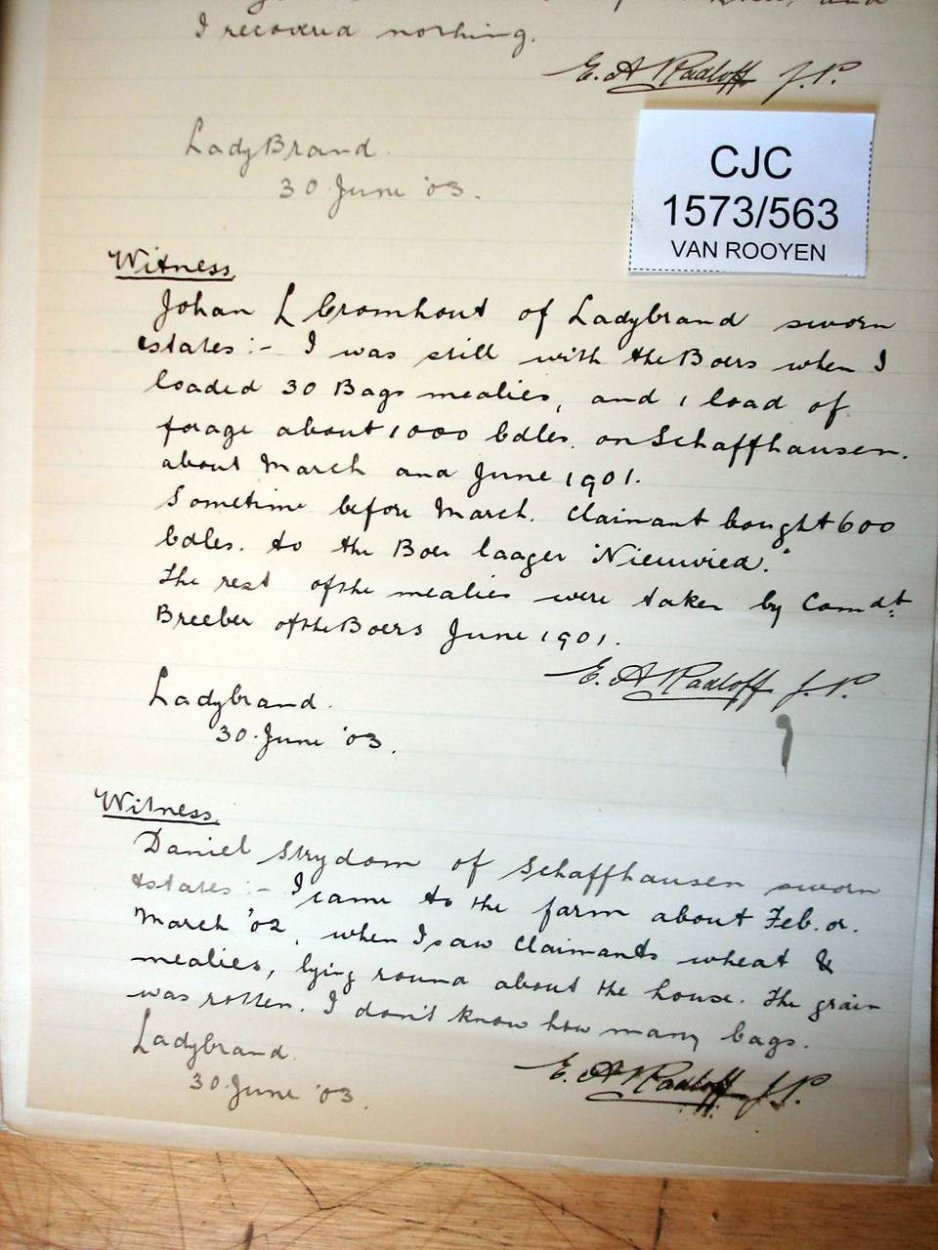 and
I recovered nothing.
E. A Radloff J.P.
LadyBrand.
30 June '03.
CJC
1573/563
VAN ROOYEN
Witness.
Johan L Cromhout of Ladybrand sworn
states:- I was still with the Boers when I
loaded 30 Bags mealies, and 1 load of
forage about 1000 bdles. on Schaffhausen.
about March and June 1901.
Sometime before March. Claimant bought 600
bdles. to the Boer laager "Nieuwied."
The rest of the mealies were taken by Comdt.
Breeber of the Boers June 1901.
E. A Radloff J.P.
Ladybrand.
30 June '03.
Witness.
Daniel Strydom of Schaffhausen sworn
states:- I came to the farm about Feb. or.
March '02, when I saw Claimants wheat &
mealies, lying round about the house. The grain
was rotten. I don't know how many bags.
Ladybrand.
30 June '03.
E. A Radloff J.P.